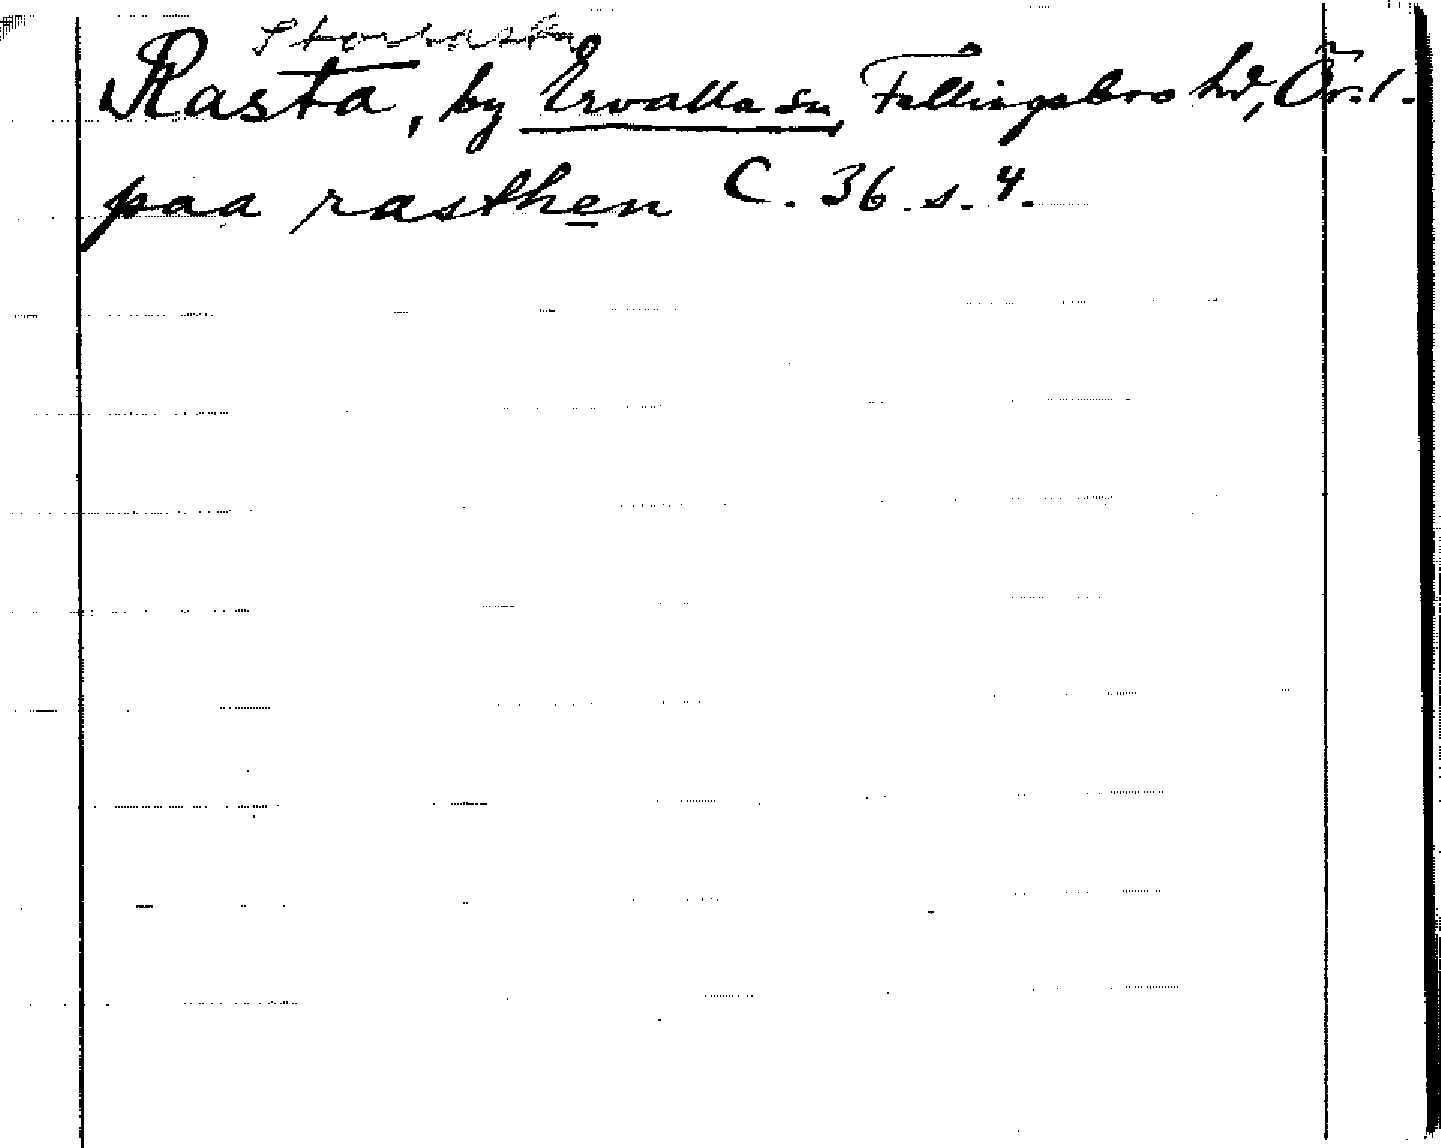 Storrasta
Rasta, by Ervalla sn, Fellingsbro hd, Ör. l.
paa rasthen C. 36 s. 4.